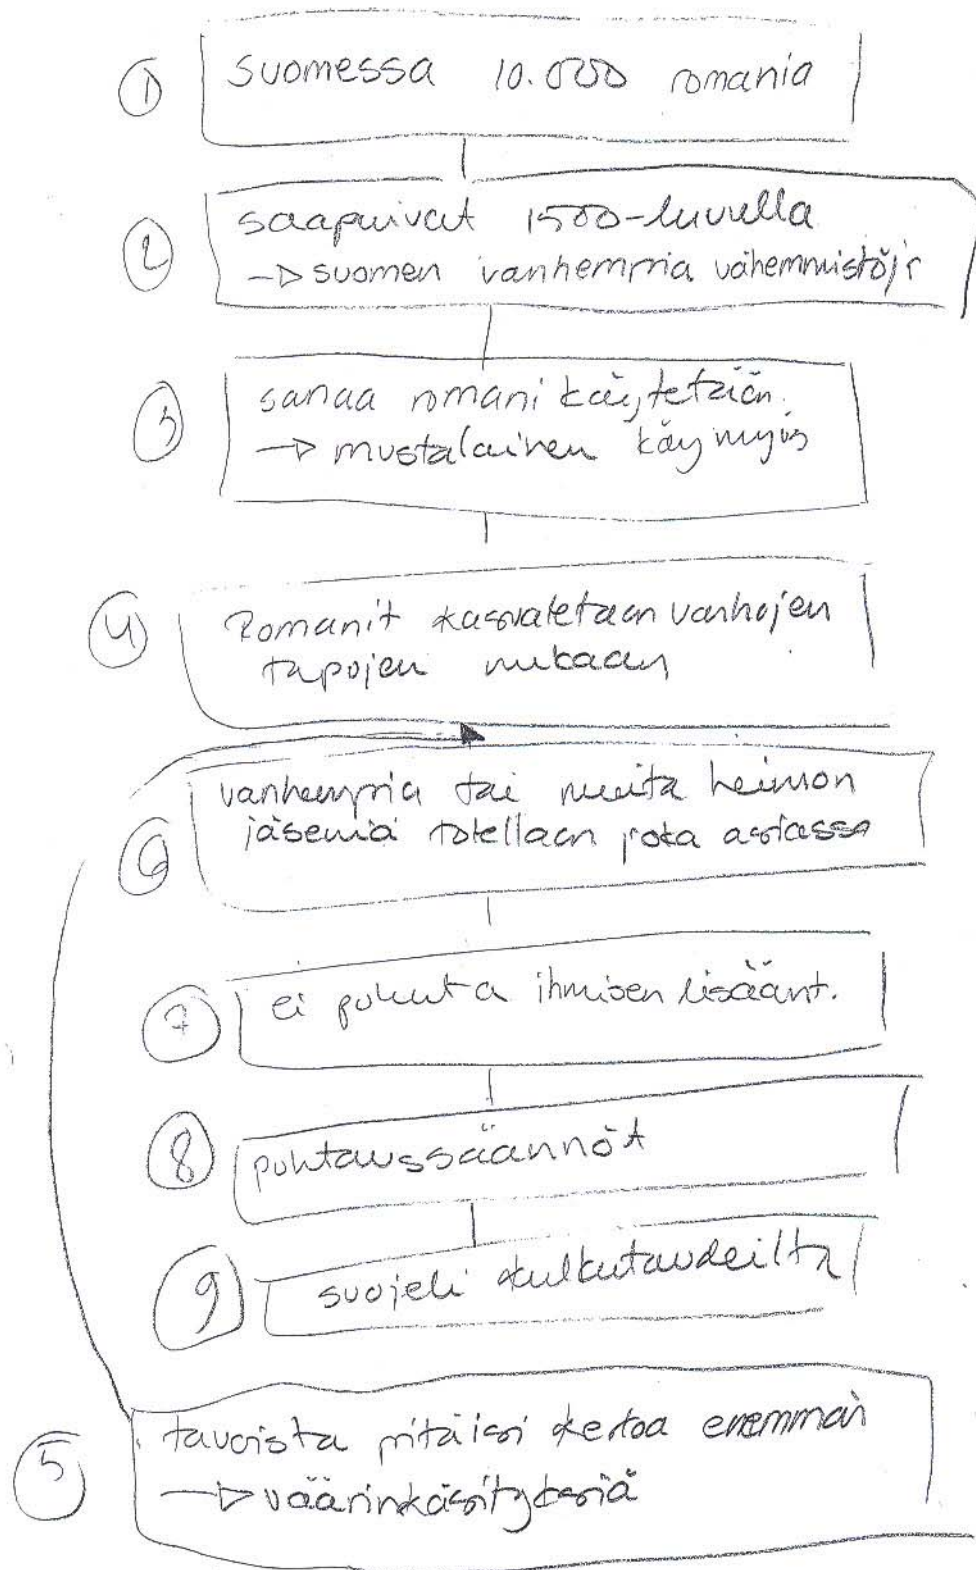 ① suomessa 10.000 romania
② saapuivat 1500-luvulla
→ suomen vanhempia vähemmistöjä
③ sanaa romani käytetään.
→ mustalainen käy myös
④ Romanit kasvatetaan vanhojen
tapojen mukaan
⑥ vanhempia tai muita heimon
jäseniä totellaan joka asiassa
⑦ ei puhuta ihmisen lisäänt.
⑧ puhtaussäännöt
⑨ suojeli kulkutaudeilta
⑤ tavoista pitäisi kertoa enemmän
→ väärinkäsityksiä